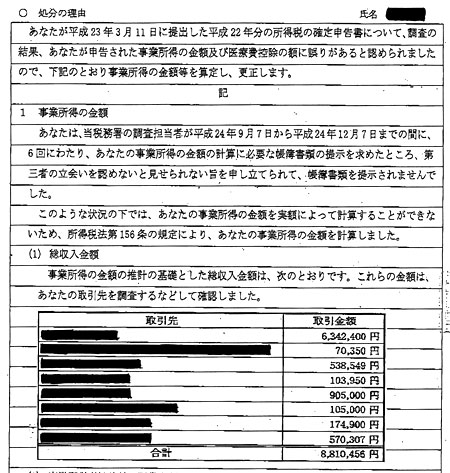 ○　処分の理由　氏名
あなたが平成23年3月11日に提出した平成22年分の所得税の確定申告書について、調査の
結果、あなたが申告された事業所得の金額及び医療費控除の額に誤りがあると認められました
ので、下記のとおり事業所得の金額等を算定し、更正します。
記
1　事業所得の金額
あなたは、当税務署の調査担当者が平成24年9月7日から平成24年12月7日までの間に、
6回にわたり、あなたの事業所得の金額の計算に必要な帳簿書類の提示を求めたところ、第
三者の立会いを認めないと見せられない旨を申し立てられて、帳簿書類を提示されませんで
した。
このような状況の下では、あなたの事業所得の金額を実額によって計算することができな
いため、所得税法第156条の規定により、あなたの事業所得の金額を計算しました。
(1)　総収入金額
事業所得の金額の推計の基礎とした総収入金額は、次のとおりです。これらの金額は、
あなたの取引先を調査するなどして確認しました。
取引先　取引金額
6,342,400円
70,350円
538,549円
103,950円
905,000円
105,000円
174,900円
570,307円
合計　8,810,456円